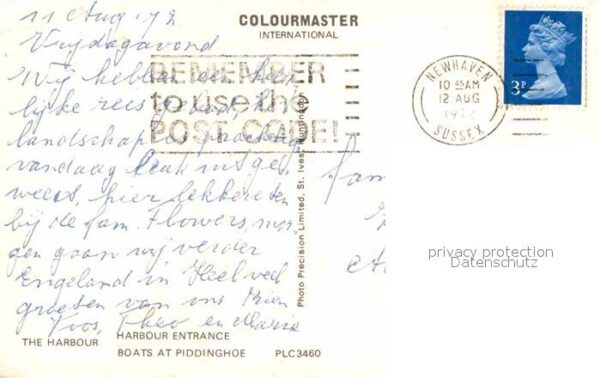 11 Aug 172
Vrijdagavond
COLOURMASTER
INTERNATIONAL
Wij hebben een heer
lijke reis gehad, het
landschap is prachtig
vandaag leuk uit ges
weest, hier lekker eten
bij de fam. Flowers, mor
gen gaan wij verder
Engeland in Heel veel
groeten van ons Rien
Theo en Marie
REMEMBER
to use the
POST CODE!
NEWHAVEN
10 AM
12 AUG
1972
SUSSEX
3P
Photo Precision Limited, St. Ives, Huntingdon
fam
privacy protection
Datenschutz
THE HARBOUR HARBOUR ENTRANCE
BOATS AT PIDDINGHOE PLC3460